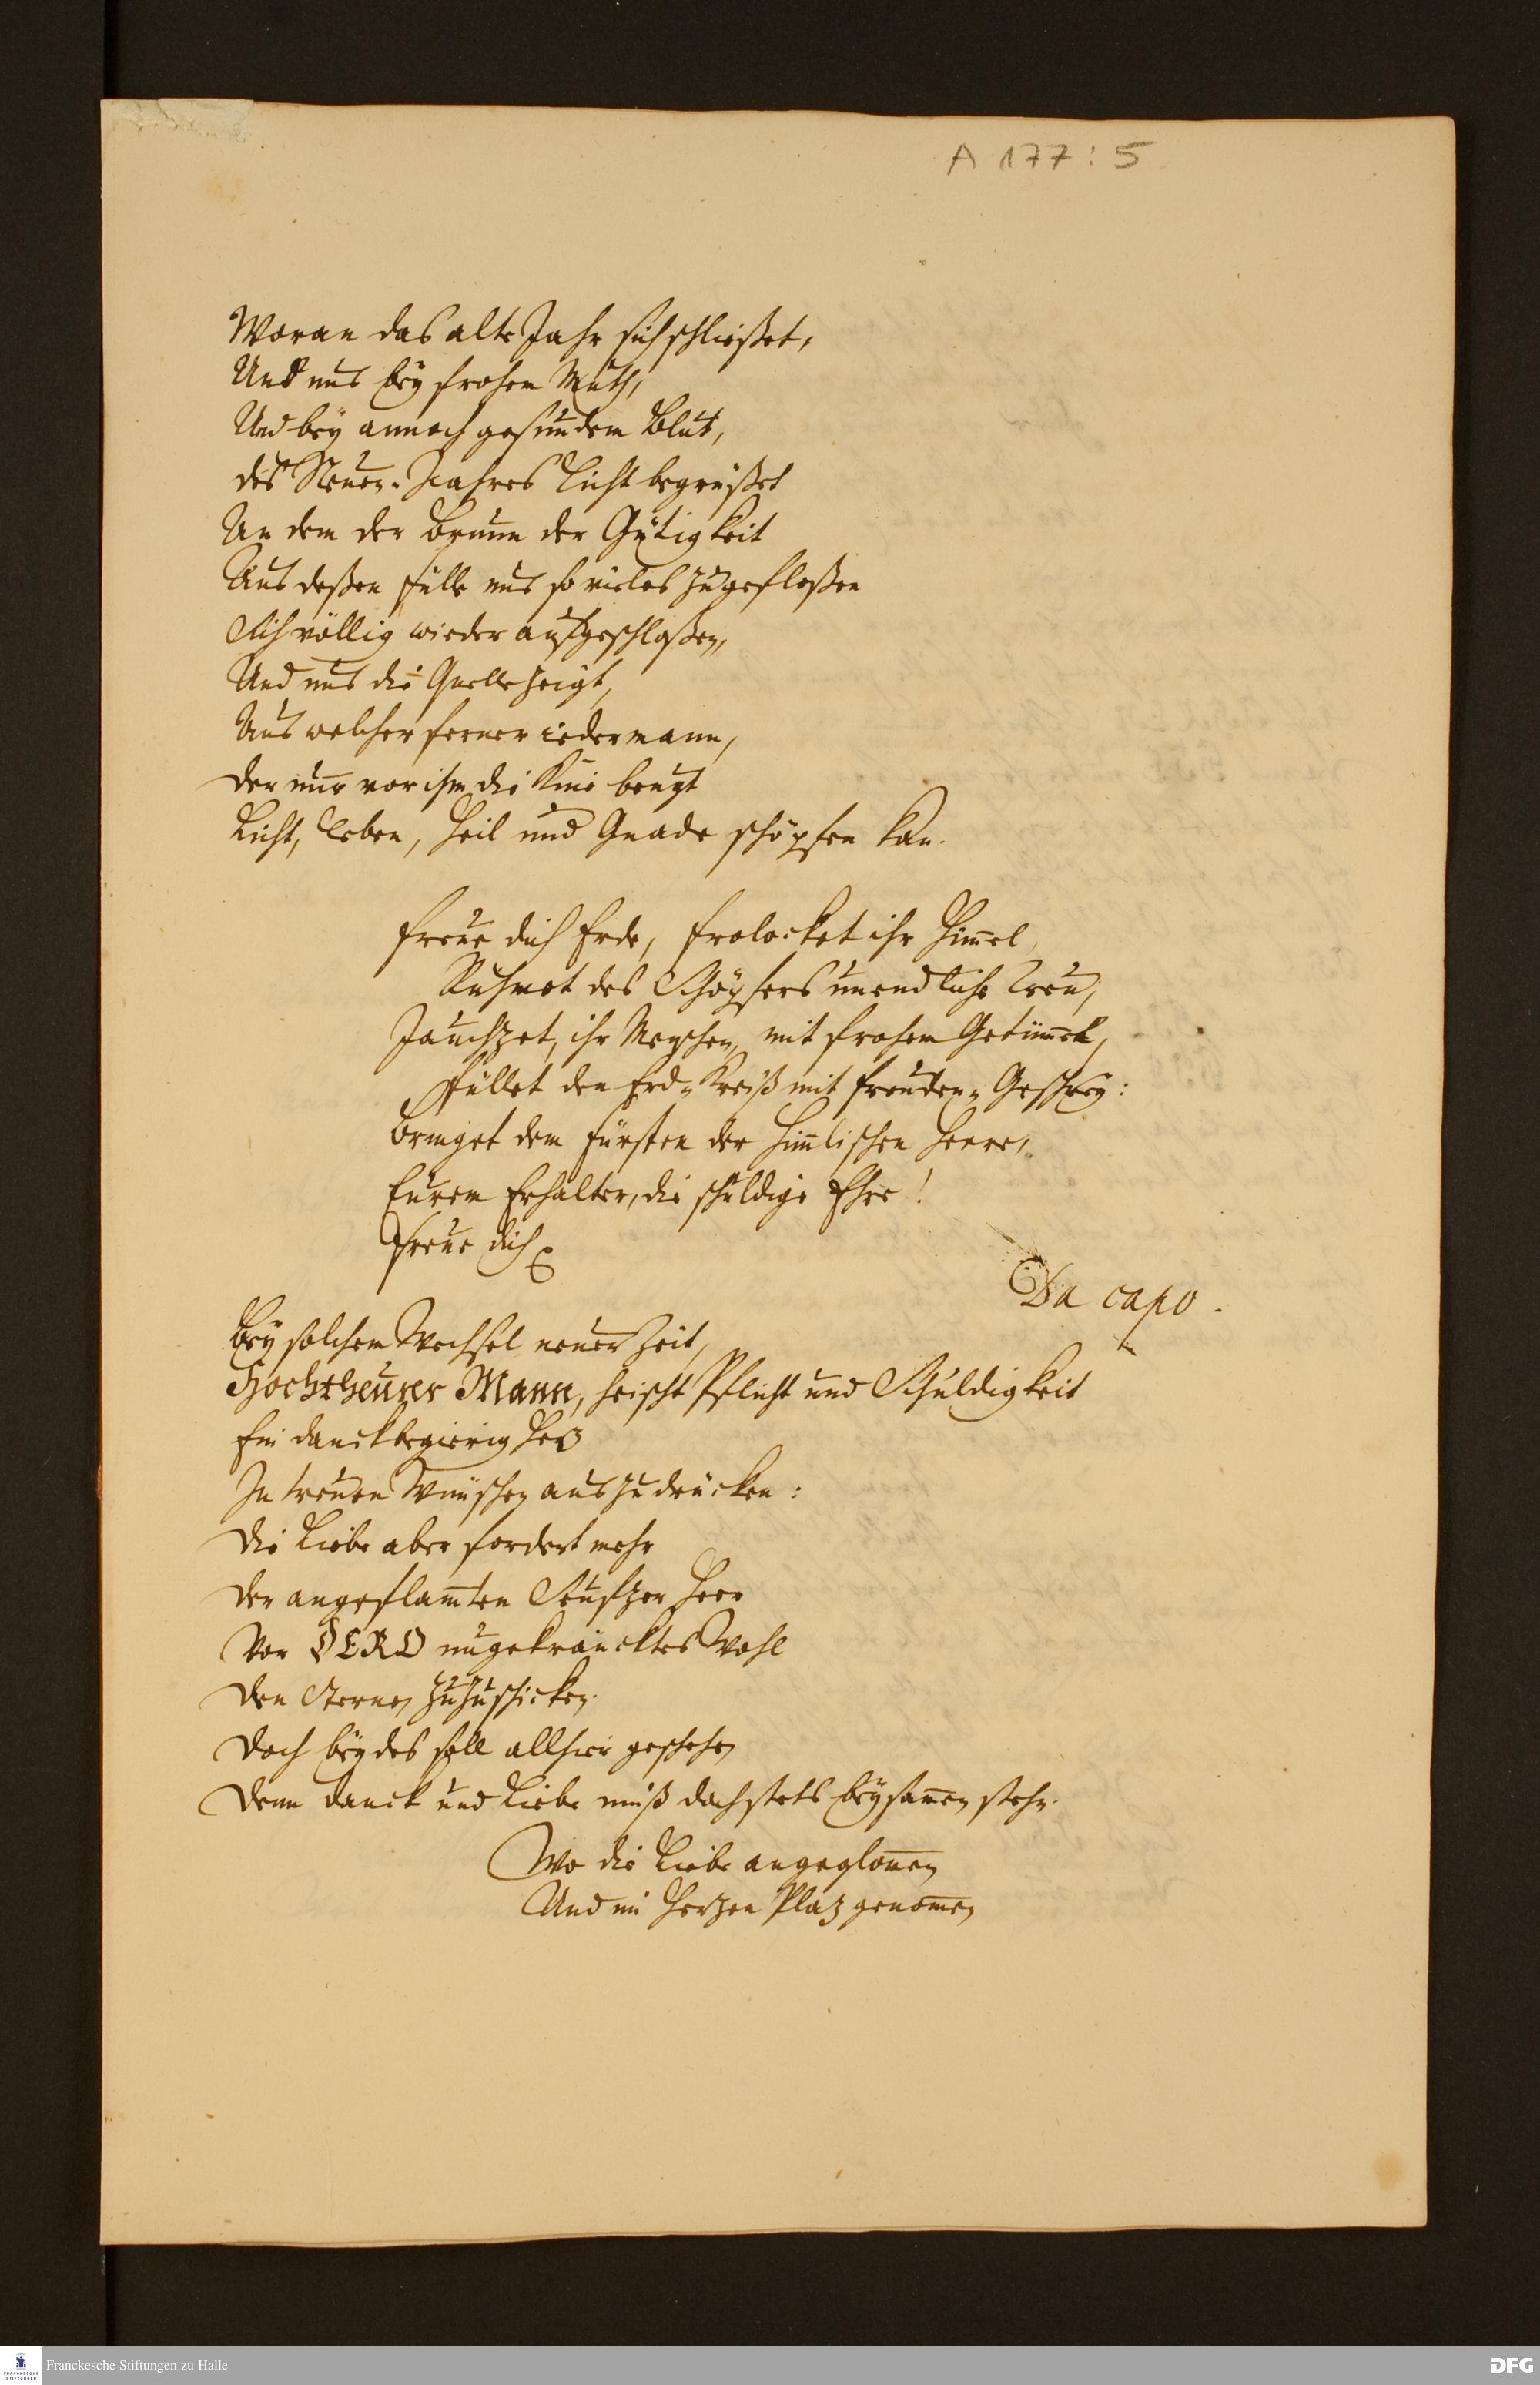 A 177:5
Woran das alte Jahr sich schließet,
Und uns bey frohem Muth,
Und bey annoch gesundem Blut,
des Neuen-Jahres Licht begrüßet
An dem der Brunn der Gütigkeit
Aus deßen Fülle uns so vieles zugefloßen
Sich völlig wieder aufgeschloßen,
Und uns die Quelle zeigt,
Aus welcher ferner iedermann,
der nur vor ihm die Knie beugt
Licht, Leben, Heil und Gnade schöpfen kan.
Freue dich Erde, frolocket ihr Him̅el,
Ruhmet des Schöpfers unendliche Treu,
Jauchzet, ihr Menschen, mit frohem Getüm̅el,
Füllet den Erd-Kreiß mit Freuden-Geschrey:
Bringet dem Fürsten der Him̅lischen Heere,
Eurem Erhalter, die schuldige Ehre!
Freue dich
Da capo.
Bey solchem Wechsel neuer Zeit,
Hochtheurer Mann, heischt Pflicht und Schuldigkeit
Ein danckbegierig Herz
In treuen Wünschen auszudrücken:
Die Liebe aber fordert mehr
Der angeflam̅ten Seufzer Heer
Vor DERO ungekräncktes Wohl
Den Sternen zuzuschicken.
Doch beydes soll allhier geschehen
Denn Danck und Liebe muß doch stets beysam̅en stehn.
Wo die Liebe angeglom̅en
Und im Herzen Plaz genom̅en
Franckesche Stiftungen zu Halle
DFG